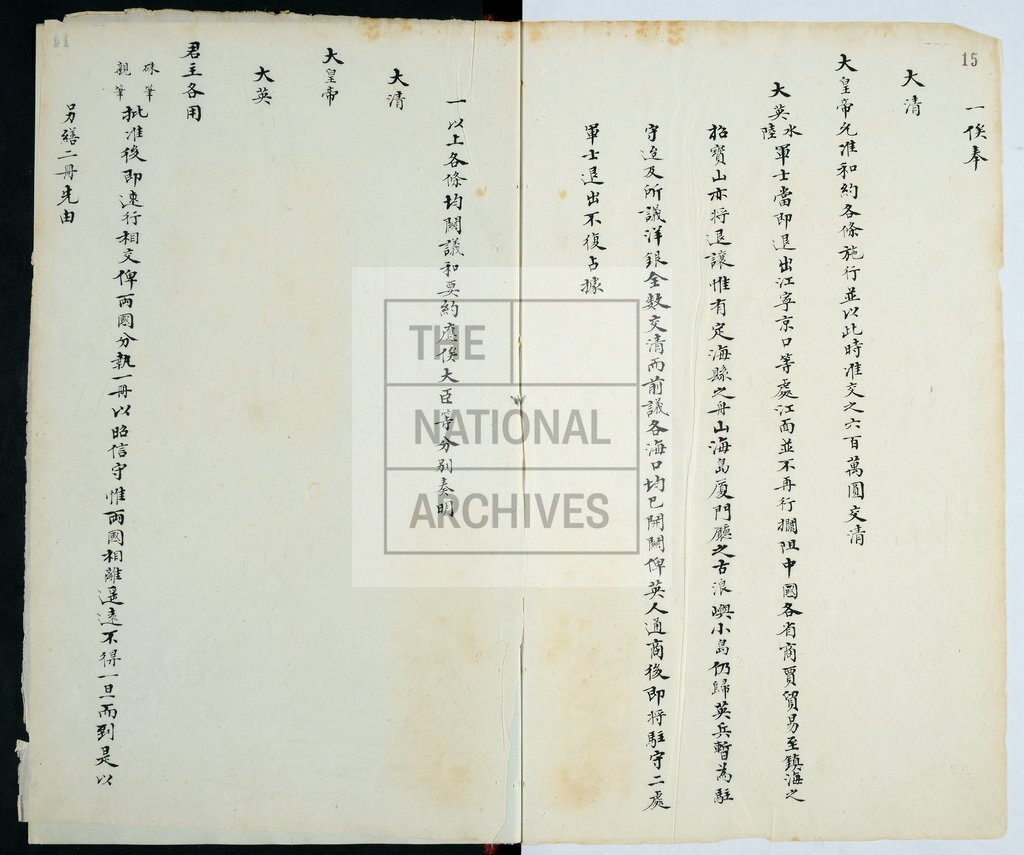 15
一俟奉
大清
大皇帝允准和約各條施行並以此時准交之六百萬圓交清
大英水陸軍士當即退出江寧京口等處江面並不再行攔阻中國各省商賈貿易至鎮海之
招寶山亦將退讓惟有定海縣之舟山海島厦門廳之古浪嶼小島仍歸英兵暫為駐
守迨及所議洋銀全數交清而前議各海口均已開闢俾英人通商後即將駐守二處
軍士退出不復占據
一以上各條均關議和要約應俟大臣等分別奏明
大清
大皇帝
大英
君主各用
硃筆親筆批准後即速行相交俾兩國分執一冊以昭信守惟兩國相離遥遠不得一旦而到是以
另繕二冊先由
THE
NATIONAL
ARCHIVES